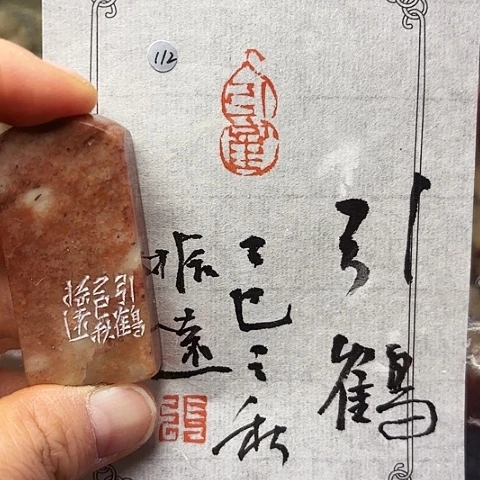 112
引鶴
引鶴
乙巳之秋
振遠
引鶴
乙巳秋
振遠